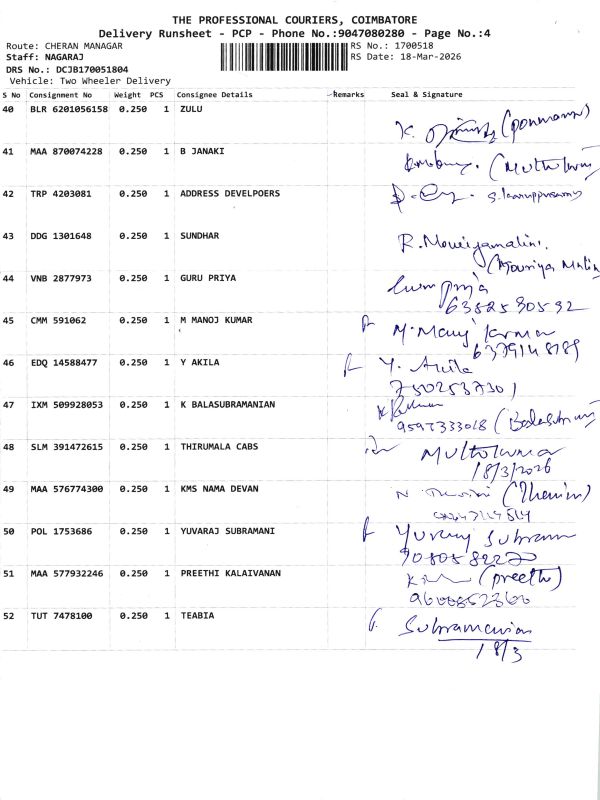 THE PROFESSIONAL COURIERS, COIMBATORE
Delivery Runsheet - PCP - Phone No.:9047080280 - Page No.:4
Route: CHERAN MANAGAR RS No.: 1700518
Staff: NAGARAJ RS Date: 18-Mar-2026
DRS No.: DCJB170051804
Vehicle: Two Wheeler Delivery
S No Consignment No Weight PCS Consignee Details Remarks Seal & Signature
40 BLR 6201056158 0.250 1 ZULU
K.
41 MAA 870074228 0.250 1 B JANAKI
42 TRP 4203081 0.250 1 ADDRESS DEVELPOERS
43 DDG 1301648 0.250 1 SUNDHAR
R.
44 VNB 2877973 0.250 1 GURU PRIYA
Gurupriya
6382580592
45 CMM 591062 0.250 1 M MANOJ KUMAR
M. Manoj Kumar
6379148189
46 EDQ 14588477 0.250 1 Y AKILA
Y. Akila
7502537301
47 IXM 509928053 0.250 1 K BALASUBRAMANIAN
9597333018
48 SLM 391472615 0.250 1 THIRUMALA CABS
18/3/2026
49 MAA 576774300 0.250 1 KMS NAMA DEVAN
50 POL 1753686 0.250 1 YUVARAJ SUBRAMANI
51 MAA 577932246 0.250 1 PREETHI KALAIVANAN
(preethi)
52 TUT 7478100 0.250 1 TEABIA
Subramanian
18/3